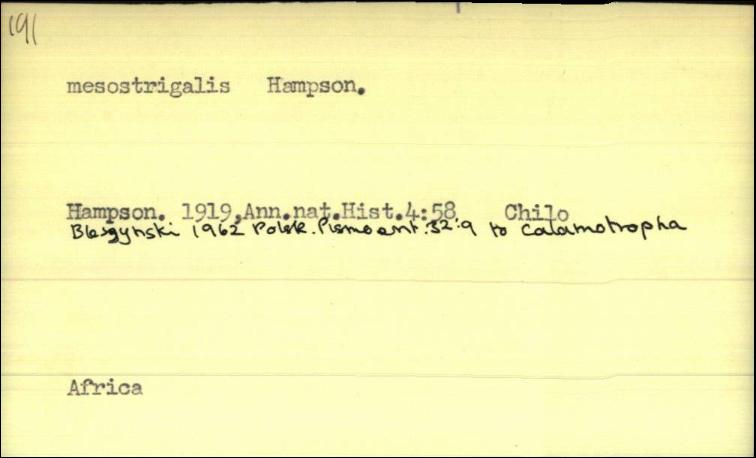 191
mesostrigalis Hampson.
Hampson. 1919,Ann.nat.Hist.4:58 Chilo
Bleszynski 1962 Polsk. Pismo ent. 32:9 to Calamotropha
Africa